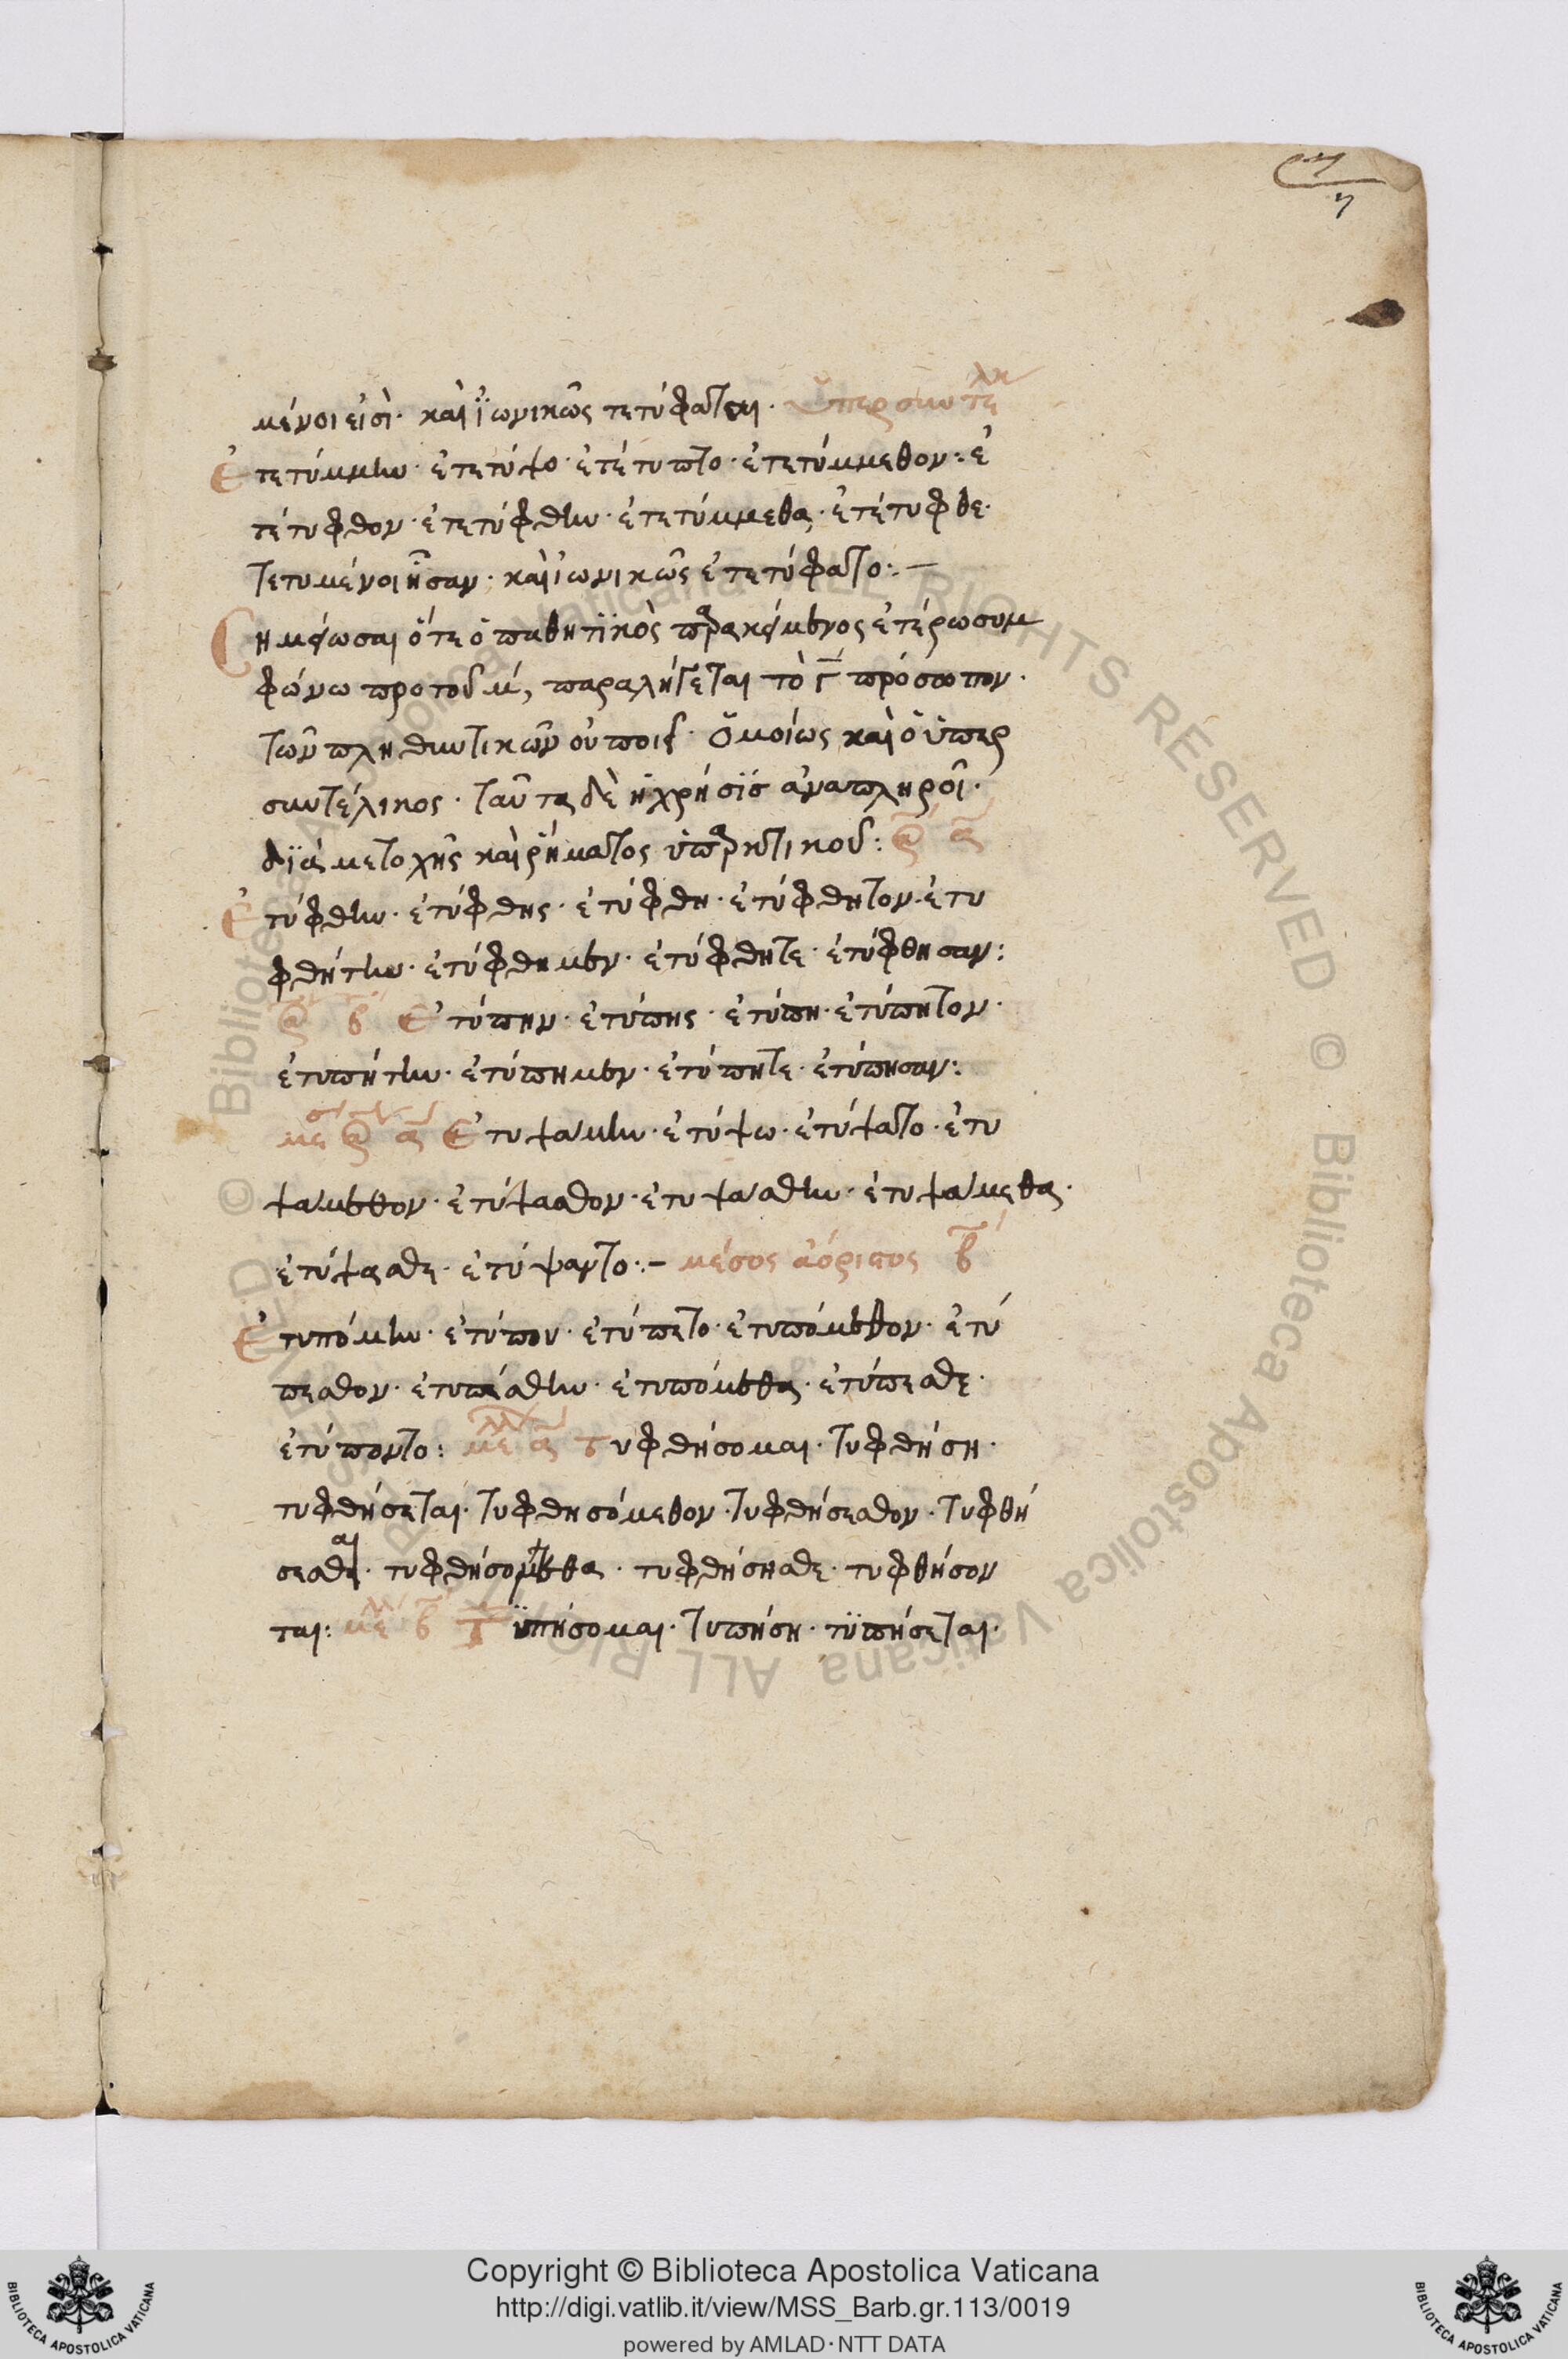 μένοι εἰσὶ· καὶ ἰωνικῶς τετύφαται· ὑπερσυντελικ
Ἐτετύμμην· ἐτετυψο· ἐτέτυπτο· ἐτετύμμεθον: ἐ
τέτυφθον· ἐτετύφθην· ἐτετύμμεθα· ἐτέτυφθε·
τετυμένοι ἦσαν· καὶ ἰωνικῶς ἐτετύφατο:. —
Σημείωσαι ὅτε ὁ παθητϊκὸς παρακείμενος ἑτέρω συμ
φώνω προ τοῦ μ, παραλήγεται τὸ γ πρόσωπον·
τῶν πληθυντικῶν οὐ ποιεῖ· ὅμοίως καὶ ὁ ὑπερ
συντέλικος· ταῦτα δὲ ἡ χρήσϊς ἀναπληροῖ·
δϊὰ μετοχῆς καὶ ῥήματος ὑπαρκτικοῦ: ἀό α
Ἐτύφθην· ἐτύφθης· ἐτύφθη· ἐτύφθητον· ἐτυ
φθήτην· ἐτύφθημεν· ἐτύφθητε· ἐτύφθησαν:
ἀό β Ἐτύπην· ἐτύπης· ἐτύπη· ἐτύπητον·
ἐτυπήτην· ἐτύπημεν· ἐτύπητε· ἐτύπησαν:
μεσ ἀό α Ἐτυψάμην· ἐτύψω· ἐτύψατο· ἐτυ
ψάμεθον· ἐτύψασθον· ἐτυψάσθην· ἐτυψάμεθα·
ἐτύψασθε· ἐτύψαντο:. – μέσος ἀόριστος β
Ἐτυπόμην· ἐτύπου· ἐτύπετο· ἐτυπόμεθον· ἐτύ
πεσθον· ἐτυπέσθην· ἐτυπόμεθα· ἐτύπεσθε·
ἐτύποντο: μελλ α Τυφθήσομαι· τυφθήση·
τυφθήσεται· τυφθησόμεθον· τυφθήσεσθον· τυφθή
σεσθαι· τυφθήσομεθα· τυφθήσησθε· τυφθήσον
ται: μελλ β Τϋπήσομαι· τυπήση· τϋπήσεται·
Copyright © Biblioteca Apostolica Vaticana
http://digi.vatlib.it/view/MSS_Barb.gr.113/0019
powered by AMLAD · NTT DATA